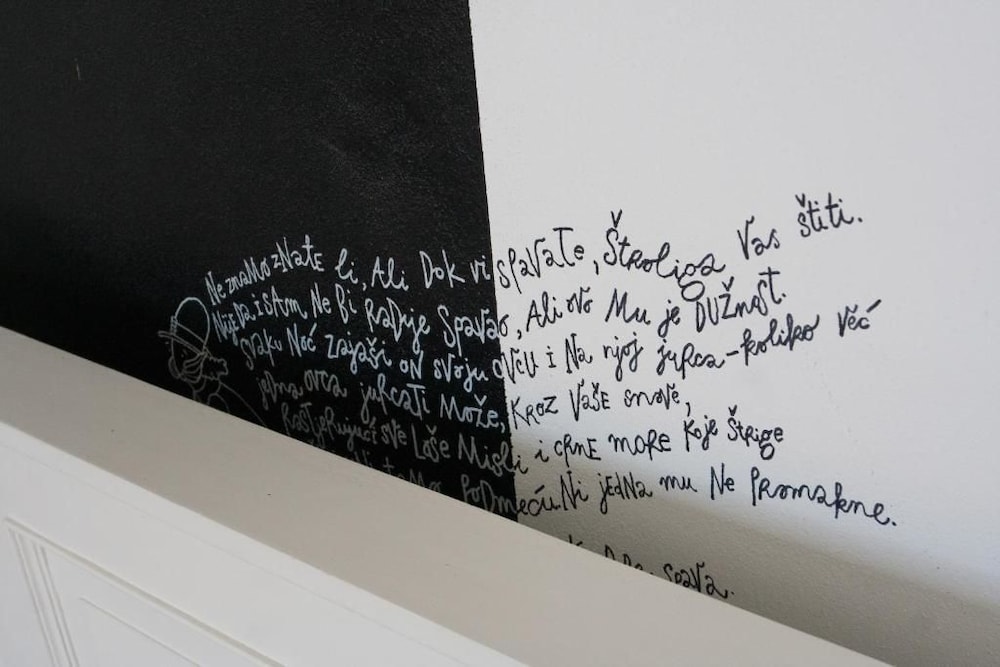 Ne znamo znate li, Ali Dok vi spavate, Štroliga Vas štiti.
Nije Da i sam Ne bi radije Spavao, Ali ovo Mu je DUŽnost.
Svaku Noć zajaši oN svoju ovcu i Na njoj jurca-koliko već
jedna ovca jurcati Može, Kroz Vaše snove,
Rastjerujući sve Loše Misli i crne more koje štrige
PoDmeću. Ni jedna mu Ne Promakne.
spava.